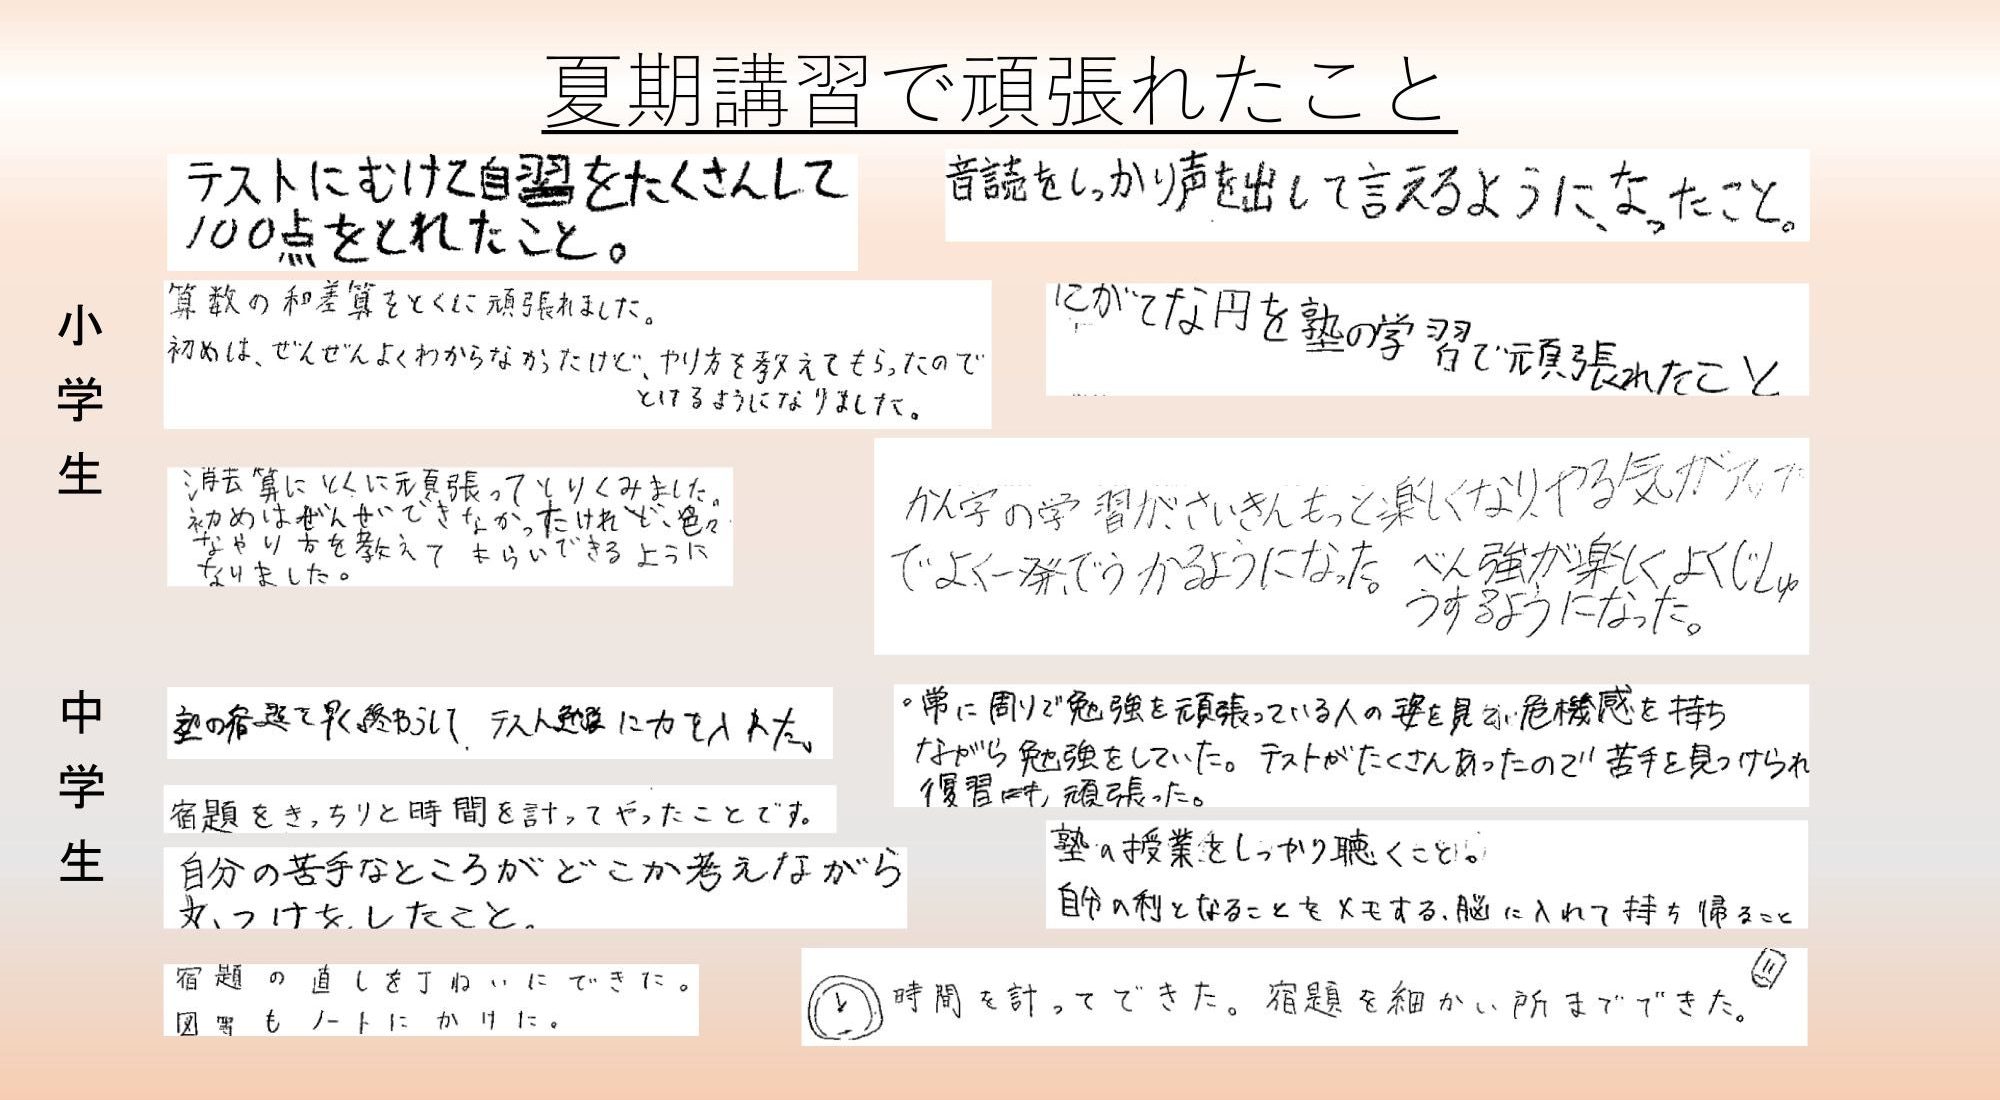 夏期講習で頑張れたこと
小学生
テストにむけて自習をたくさんして
100点をとれたこと。
音読をしっかり声を出して言えるようになったこと。
算数の和差算をとくに頑張れました。
初めは、ぜんぜんよくわからなかったけど、やり方を教えてもらったので
とけるようになりました。
にがてな円を塾の学習で頑張れたこと
消去算にとくに頑張ってとりくみました。
初めはぜんぜいできなかったけれど、色々
なやり方を教えてもらいできるように
なりました。
かん字の学習が、さいきんもっと楽しくなり、やる気がアップ
でよく一発でうかるようになった。べん強が楽しくよくじしゅ
うするようになった。
中学生
塾の宿題を早く終わらして、テスト勉強に力を入れた。
宿題をきっちりと時間を計ってやったことです。
自分の苦手なところがどこか考えながら
丸つけをしたこと。
宿題の直しを丁ねいにできた。
図もノートにかけた。
・常に周りで勉強を頑張っている人の姿を見て危機感を持ち
ながら勉強をしていた。テストがたくさんあったので苦手を見つけられ
復習にも頑張った。
塾の授業をしっかり聴くこと。
自分の利となることをメモする、脳に入れて持ち帰ること
時間を計ってできた。宿題を細かい所までできた。